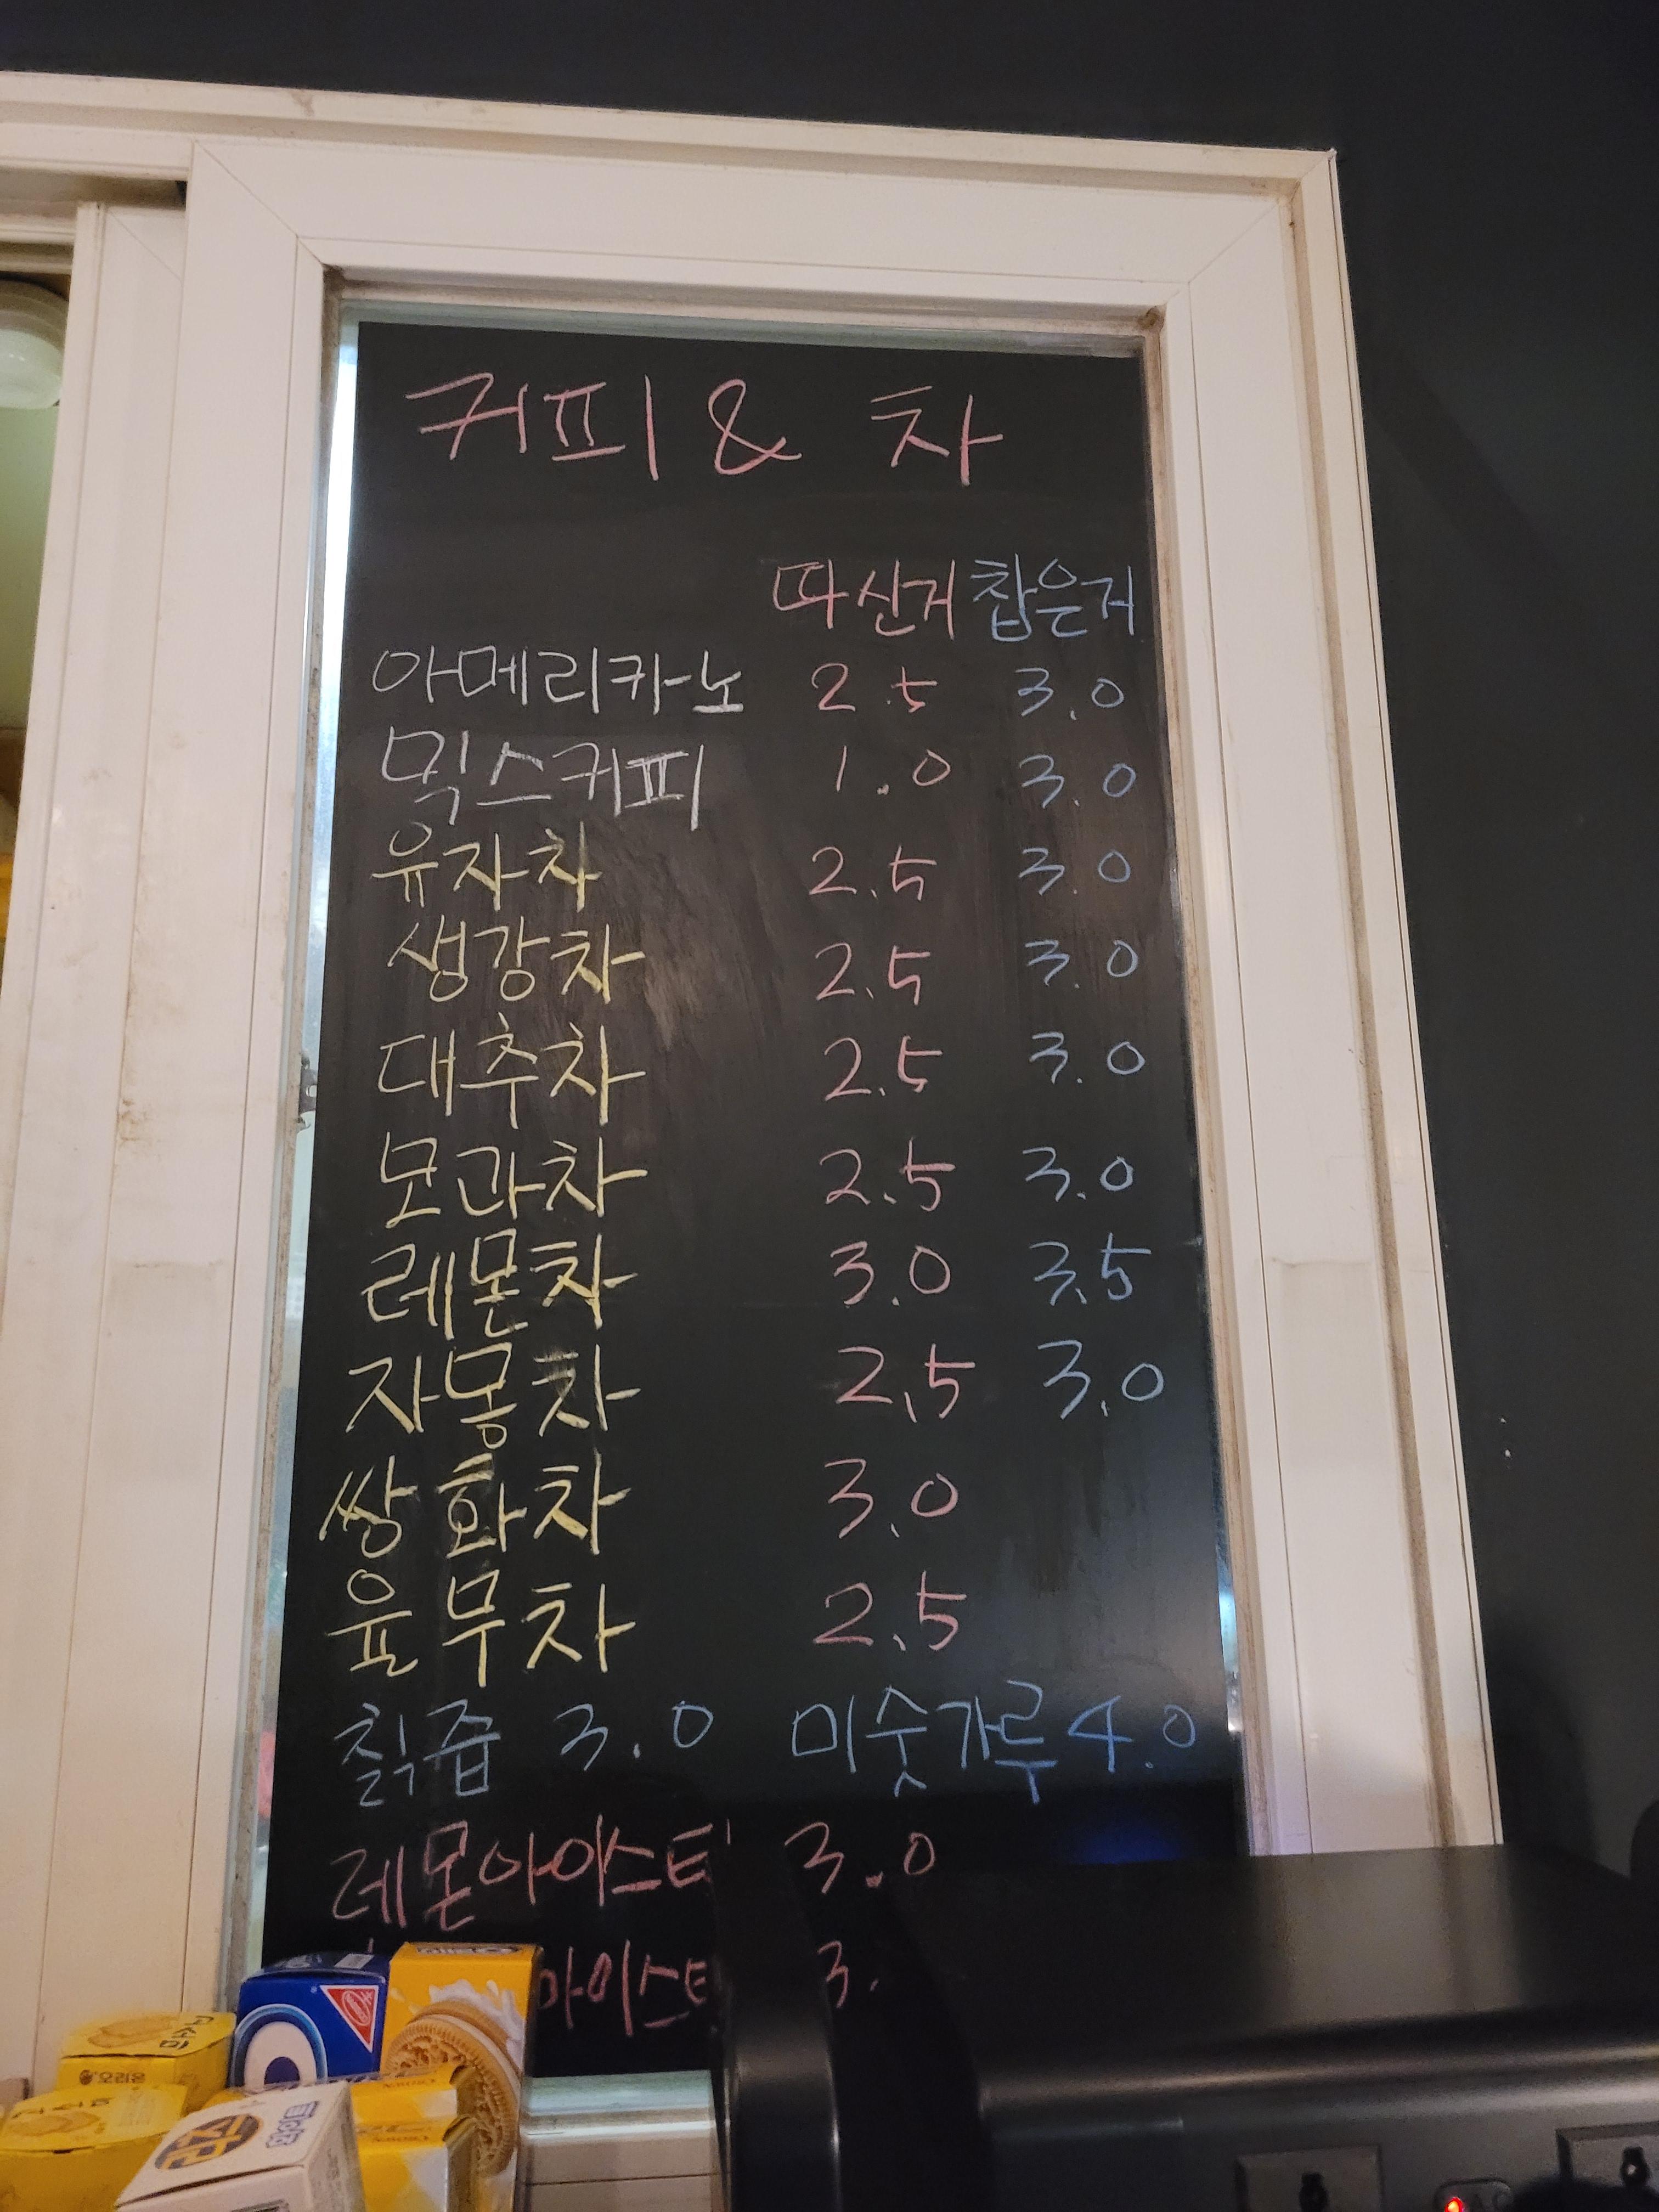 커피 & 차
따신거 찹은거
아메리카노 2.5 3.0
믹스커피 1.0 3.0
유자차 2.5 3.0
생강차 2.5 3.0
대추차 2.5 3.0
모과차 2.5 3.0
레몬차 3.0 3.5
자몽차 2.5 3.0
쌍화차 3.0
율무차 2.5
칡즙 3.0 미숫가루 4.0
레몬아이스티 3.0
아이스티 3.